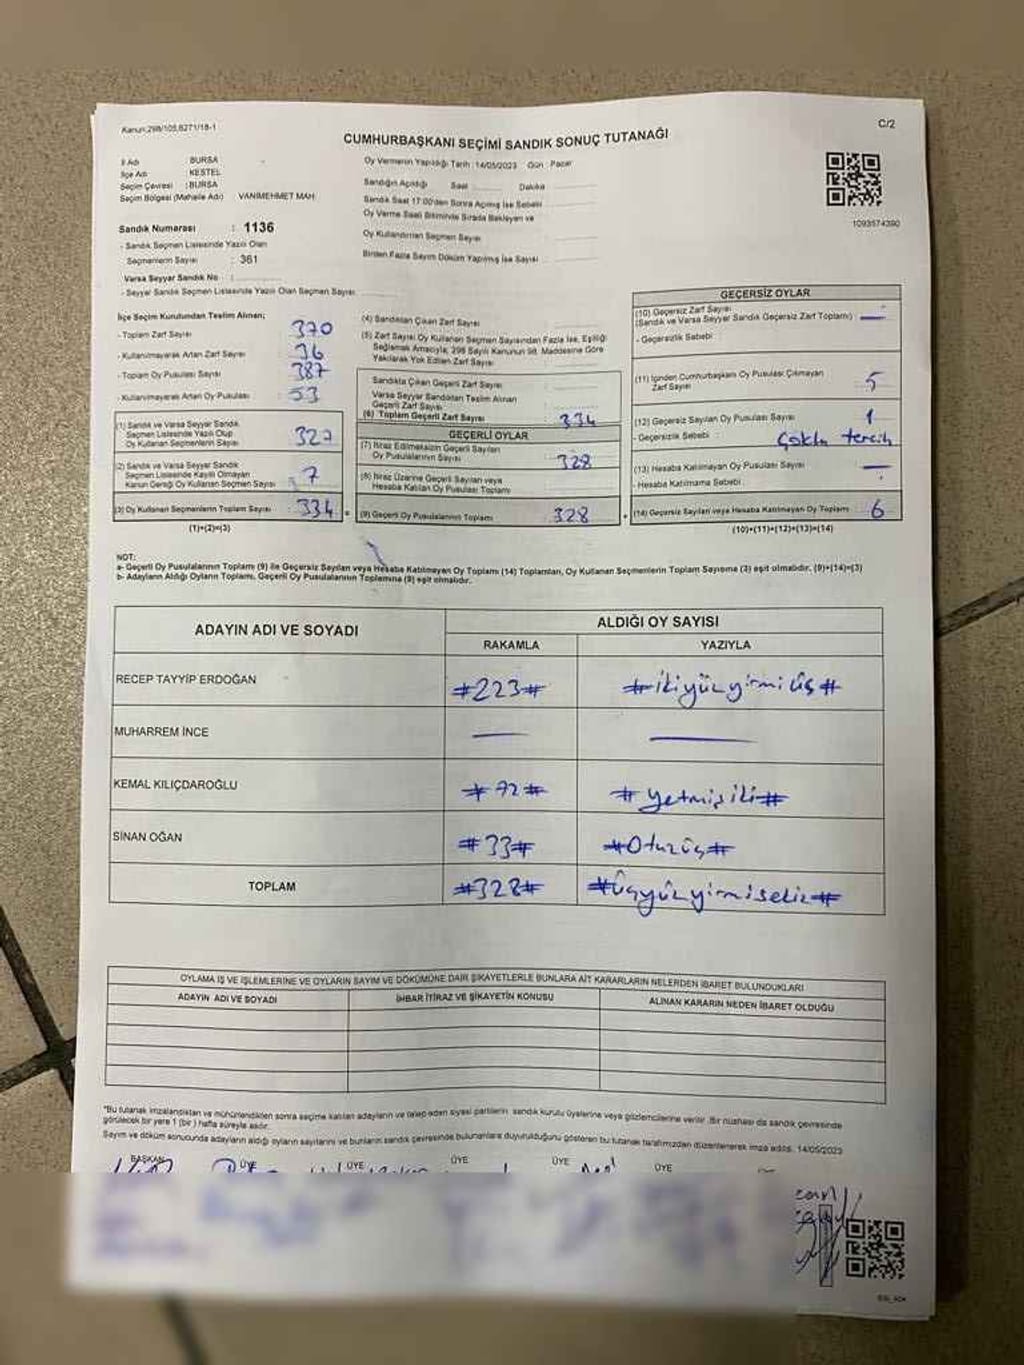 Kanun:298/105,6271/18-1
C/2
CUMHURBAŞKANI SEÇİMİ SANDIK SONUÇ TUTANAĞI
İl Adı BURSA
İlçe Adı KESTEL
Seçim Çevresi : BURSA
Seçim Bölgesi (Mahalle Adı) VANIMEHMET MAH
Sandık Numarası : 1136
- Sandık Seçmen Listesinde Yazılı Olan
Seçmenlerin Sayısı : 361
Varsa Seyyar Sandık No :
- Seyyar Sandık Seçmen Listesinde Yazılı Olan Seçmen Sayısı
Oy Vermenin Yapıldığı Tarih : 14/05/2023 Gün : Pazar
Sandığın Açıldığı Saat Dakika
Sandık Saat 17:00'den Sonra Açılmış İse Sebebi
Oy Verme Saati Bitiminde Sırada Bekleyen ve
Oy Kullandırılan Seçmen Sayısı
Birden Fazla Sayım Döküm Yapılmış İse Sayısı
1093574390
İlçe Seçim Kurulundan Teslim Alınan;
- Toplam Zarf Sayısı 370
- Kullanılmayarak Artan Zarf Sayısı 36
- Toplam Oy Pusulası Sayısı 387
- Kullanılmayarak Artan Oy Pusulası 53
(1) Sandık ve Varsa Seyyar Sandık
Seçmen Listesinde Yazılı Olup
Oy Kullanan Seçmenlerin Sayısı 327
(2) Sandık ve Varsa Seyyar Sandık
Seçmen Listesinde Kayıtlı Olmayan
Kanun Gereği Oy Kullanan Seçmen Sayısı 7
(3) Oy Kullanan Seçmenlerin Toplam Sayısı : 334
(1)+(2)=(3)
(4) Sandıktan Çıkan Zarf Sayısı
(5) Zarf Sayısı Oy Kullanan Seçmen Sayısından Fazla İse, Eşitliği
Sağlamak Amacıyla, 298 Sayılı Kanunun 98. Maddesine Göre
Yakılarak Yok Edilen Zarf Sayısı
Sandıkta Çıkan Geçerli Zarf Sayısı
Varsa Seyyar Sandıktan Teslim Alınan
Geçerli Zarf Sayısı
(6) Toplam Geçerli Zarf Sayısı : 334
GEÇERLİ OYLAR
(7) İtiraz Edilmeksizin Geçerli Sayılan
Oy Pusulalarının Sayısı 328
(8) İtiraz Üzerine Geçerli Sayılan veya
Hesaba Katılan Oy Pusulası Toplamı
(9) Geçerli Oy Pusulalarının Toplamı 328
GEÇERSİZ OYLAR
(10) Geçersiz Zarf Sayısı
(Sandık ve Varsa Seyyar Sandık Geçersiz Zarf Toplamı) : —
- Geçersizlik Sebebi :
(11) İçinden Cumhurbaşkanı Oy Pusulası Çıkmayan
Zarf Sayısı 5
(12) Geçersiz Sayılan Oy Pusulası Sayısı 1
- Geçersizlik Sebebi : Çoklu tercih
(13) Hesaba Katılmayan Oy Pusulası Sayısı —
- Hesaba Katılmama Sebebi :
(14) Geçersiz Sayılan veya Hesaba Katılmayan Oy Toplamı 6
(10)+(11)+(12)+(13)=(14)
NOT:
a- Geçerli Oy Pusulalarının Toplamı (9) ile Geçersiz Sayılan veya Hesaba Katılmayan Oy Toplamı (14) Toplamları, Oy Kullanan Seçmenlerin Toplam Sayısına (3) eşit olmalıdır. (9)+(14)=(3)
b- Adayların Aldığı Oyların Toplamı, Geçerli Oy Pusulalarının Toplamına (9) eşit olmalıdır.
ADAYIN ADI VE SOYADI ALDIĞI OY SAYISI
RAKAMLA YAZIYLA
RECEP TAYYİP ERDOĞAN #223# #ikiyüzyirmiüç#
MUHARREM İNCE — —
KEMAL KILIÇDAROĞLU #72# #yetmişiki#
SİNAN OĞAN #33# #Otuzüç#
TOPLAM #328# #üçyüzyirmisekiz#
OYLAMA İŞ VE İŞLEMLERİNE VE OYLARIN SAYIM VE DÖKÜMÜNE DAİR ŞİKAYETLERLE BUNLARA AİT KARARLARIN NELERDEN İBARET BULUNDUKLARI
ADAYIN ADI VE SOYADI İHBAR İTİRAZ VE ŞİKAYETİN KONUSU ALINAN KARARIN NEDEN İBARET OLDUĞU
*Bu tutanak imzalandıktan ve mühürlendikten sonra seçime katılan adayların ve talep eden siyasi partilerin sandık kurulu üyelerine veya gözlemcilerine verilir. Bir nüshası da sandık çevresinde
görülecek bir yere 1 (bir) hafta süreyle asılır.
Sayım ve döküm sonucunda adayların aldığı oyların sayılarını ve bunların sandık çevresinde bulunanlara duyurulduğunu gösteren bu tutanak tarafımızdan düzenlenerek imza edildi. 14/05/2023
BAŞKAN ÜYE ÜYE ÜYE ÜYE ÜYE